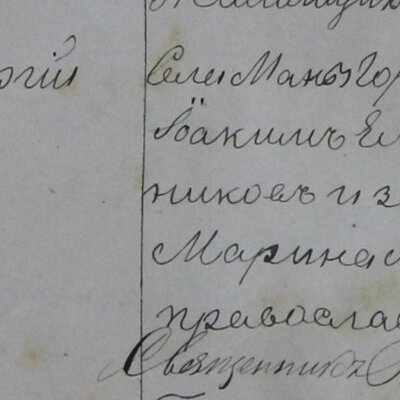 ргій Села Маньго
Іоакимъ Ел
никовъ и з
Марина
правосла
Священникъ